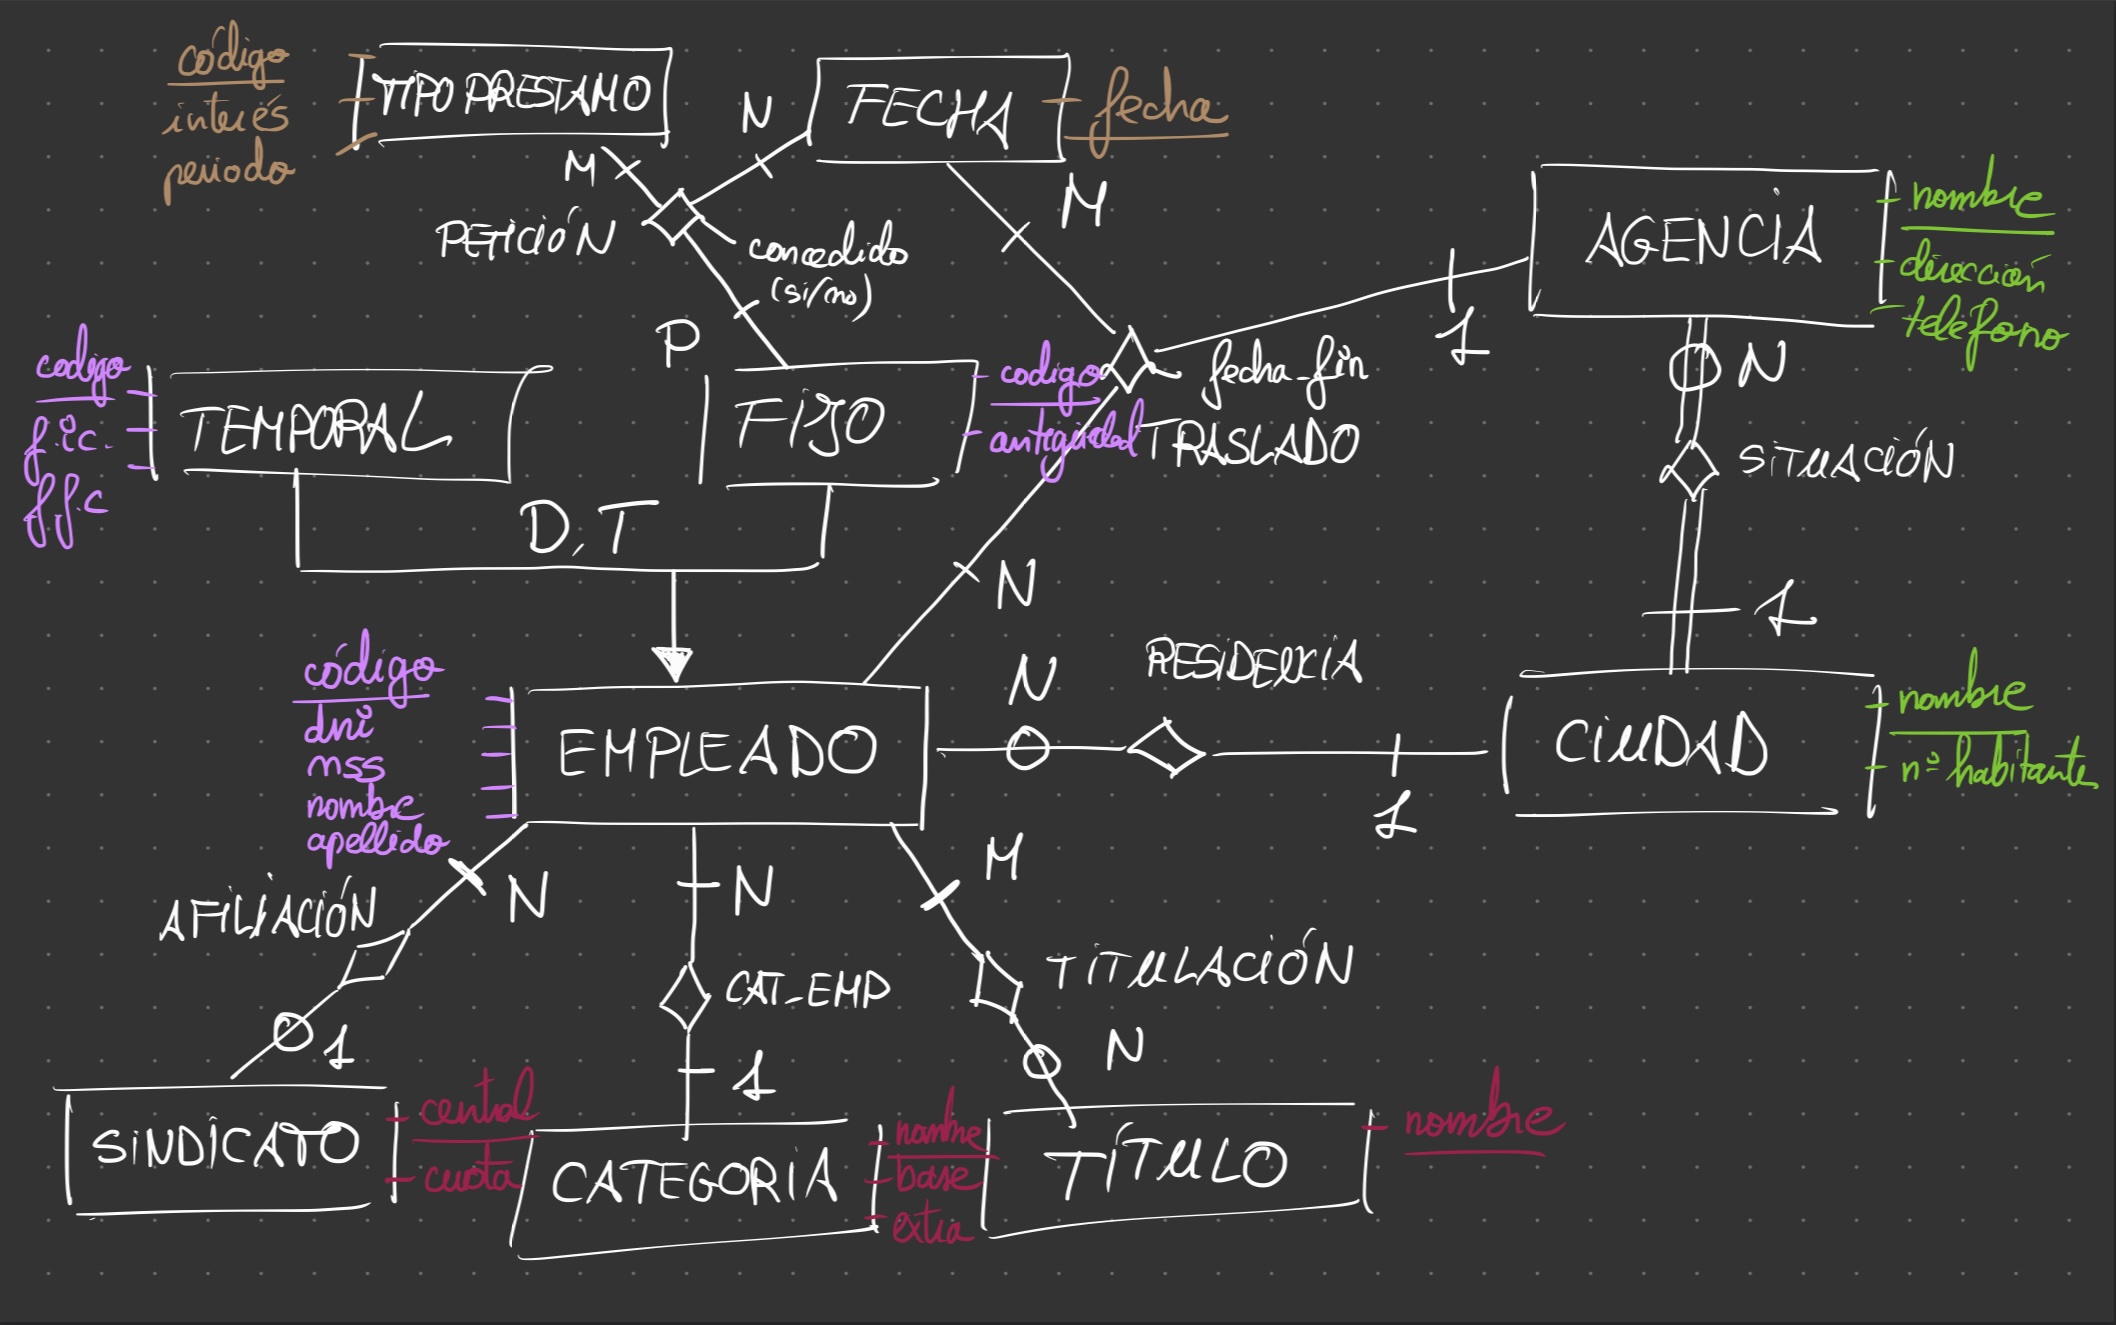 código
interés
periodo
TIPO PRESTAMO
N
FECHA
fecha
M
PETICIÓN
concedido
(si/no)
M
P
1
AGENCIA
nombre
dirección
teléfono
N
SITUACIÓN
1
codigo
f.i.c.
f.f.c
TEMPORAL
FIJO
codigo
antigüedad
fecha_fin
TRASLADO
D,T
N
código
dni
nss
nombre
apellido
EMPLEADO
N
RESIDENCIA
1
CIUDAD
nombre
nº habitantes
AFILIACIÓN
N
1
N
CAT_EMP
1
M
TITULACIÓN
N
SINDICATO
central
cuota
CATEGORIA
nombre
base
extra
TÍTULO
nombre